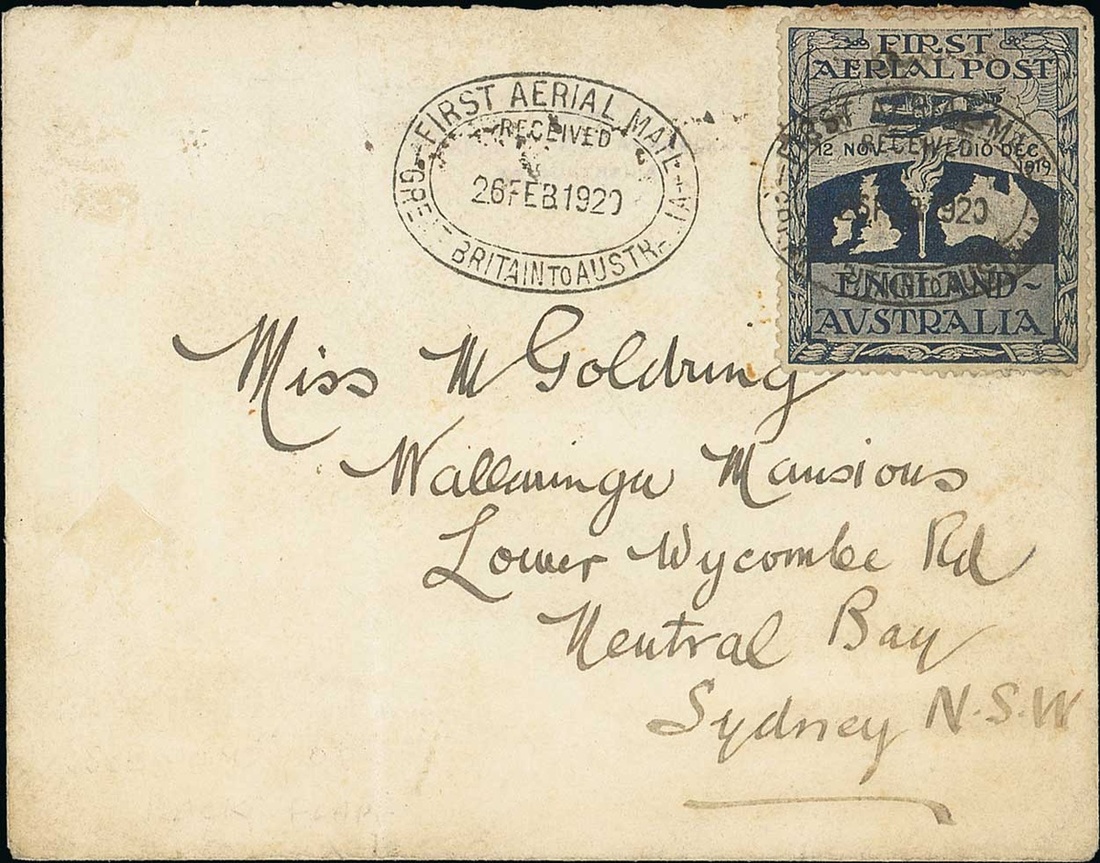 FIRST AERIAL MAIL
RECEIVED
26 FEB 1920
GREAT BRITAIN TO AUSTRALIA
FIRST
AERIAL POST
12 NOV. 10 DEC.
1919
ENGLAND-
AUSTRALIA
FIRST AERIAL MAIL
RECEIVED
26 FEB 1920
Miss M Goldring
Wallaringa Mansions
Lower Wycombe Rd
Neutral Bay
Sydney N.S.W